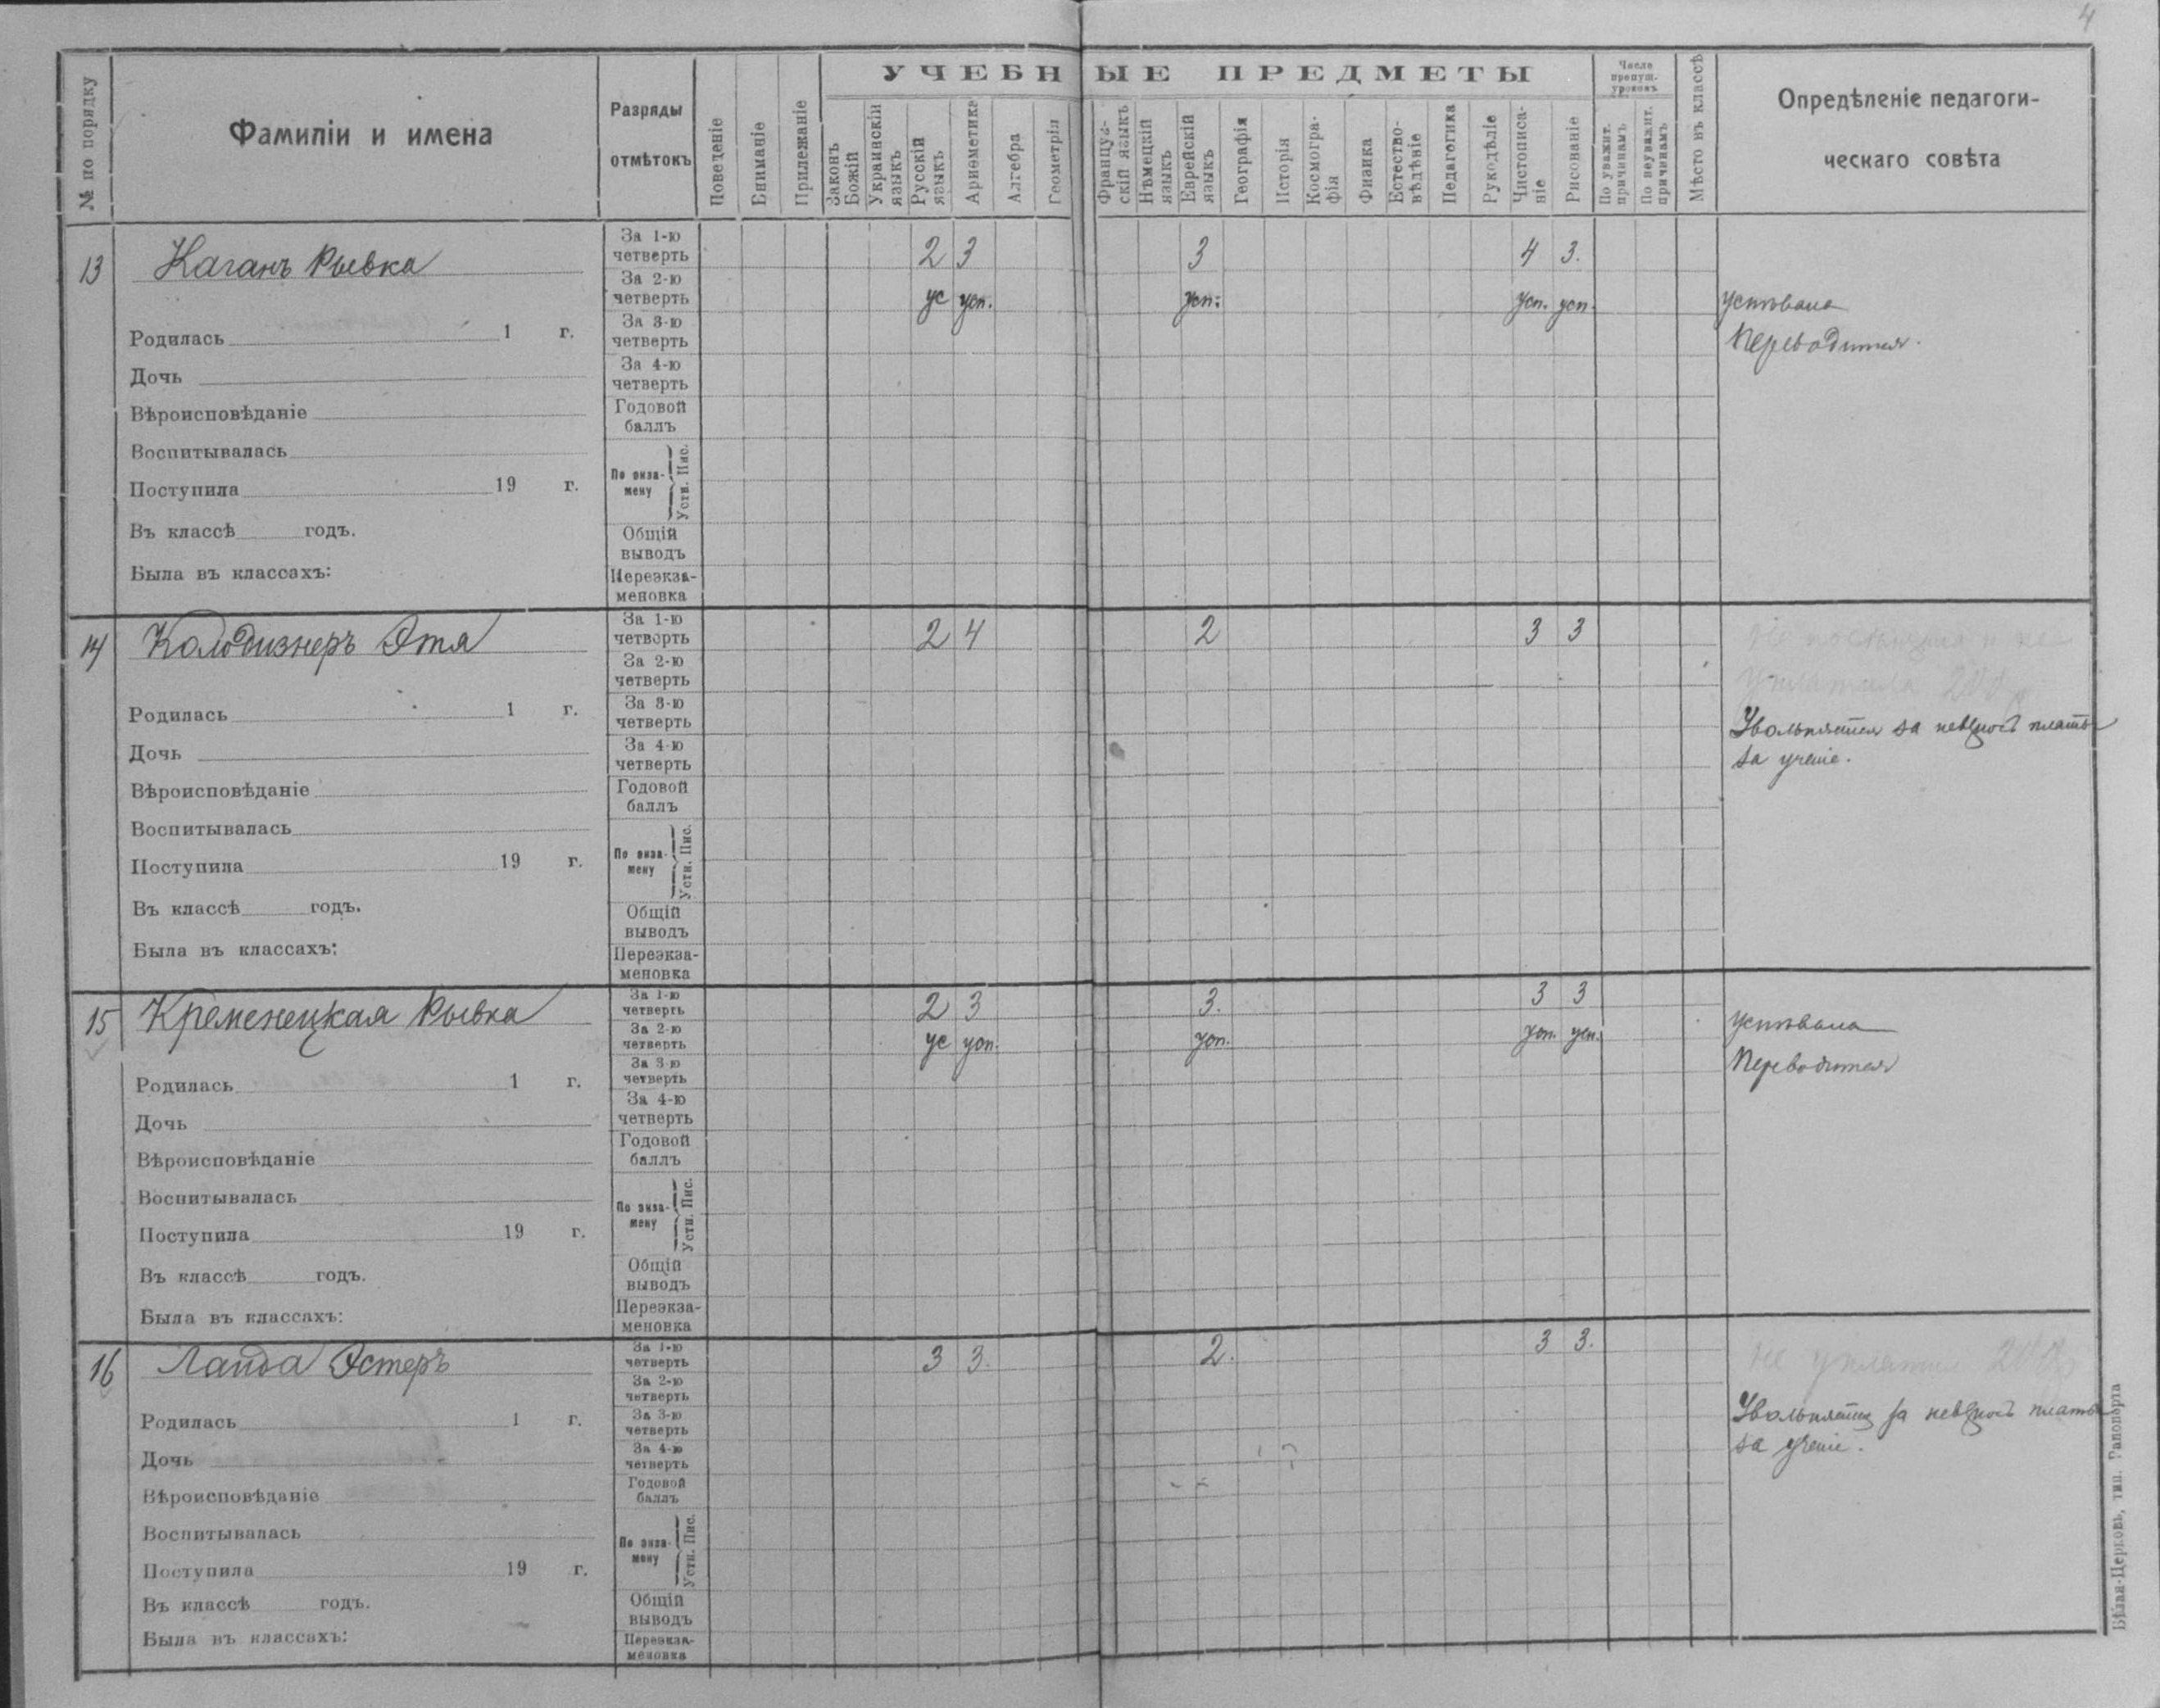 4
УЧЕБНЫЕ ПРЕДМЕТЫ
№ по порядку
Фамиліи и имена
Разряды
отмѣтокъ
Поведеніе
Вниманіе
Прилежаніе
Законъ Божій
Украинскій языкъ
Русскій языкъ
Ариѳметика
Алгебра
Геометрія
Француз-
скій языкъ
Нѣмецкій языкъ
Еврейскій языкъ
Географія
Исторія
Космогра-
фія
Физика
Естество-
вѣдѣніе
Педагогика
Рукодѣліе
Чистописа-
ніе
Рисованіе
Число
пропущ.
уроковъ
По уважит. причинамъ
По неуважит. причинамъ
Мѣсто въ классѣ
Опредѣленіе педагоги-
ческаго совѣта
13 Каганъ Рывка
Родилась 1 г.
Дочь
Вѣроисповѣданіе
Воспитывалась
Поступила 19 г.
Въ классѣ годъ.
Была въ классахъ:
За 1-ю
четверть 2 3 3 4 3.
За 2-ю
четверть ус усп. усп. усп. усп.
За 3-ю
четверть
За 4-ю
четверть
Годовой
баллъ
По экза-
мену Устн. Пис.
Общій
выводъ
Переэкза-
меновка
успѣвала
Переводится.
14 Колодизнеръ Этя
Родилась 1 г.
Дочь
Вѣроисповѣданіе
Воспитывалась
Поступила 19 г.
Въ классѣ годъ.
Была въ классахъ:
За 1-ю
четверть 2 4 2 3 3
За 2-ю
четверть
За 3-ю
четверть
За 4-ю
четверть
Годовой
баллъ
По экза-
мену Устн. Пис.
Общій
выводъ
Переэкза-
меновка
уплатила
Увольняется за невзносъ платы
за ученіе.
15 Кременецкая Рывка
Родилась 1 г.
Дочь
Вѣроисповѣданіе
Воспитывалась
Поступила 19 г.
Въ классѣ годъ.
Была въ классахъ:
За 1-ю
четверть 2 3 3. 3 3
За 2-ю
четверть ус усп. усп. усп. усп.
За 3-ю
четверть
За 4-ю
четверть
Годовой
баллъ
По экза-
мену Устн. Пис.
Общій
выводъ
Переэкза-
меновка
успѣвала
Переводится
16 Ланда Эстеръ
Родилась 1 г.
Дочь
Вѣроисповѣданіе
Воспитывалась
Поступила 19 г.
Въ классѣ годъ.
Была въ классахъ:
За 1-ю
четверть 3 3. 2. 3 3.
За 2-ю
четверть
За 3-ю
четверть
За 4-ю
четверть
Годовой
баллъ
По экза-
мену Устн. Пис.
Общій
выводъ
Переэкза-
меновка
не
Увольняется за невзносъ платы
за ученіе.
Бѣлая-Церковь, тип. Рапопорта